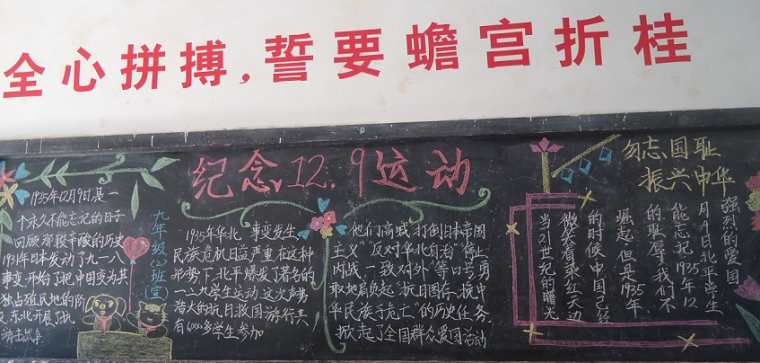 全心拼搏,誓要蟾宫折桂
纪念12.9运动
勿忘国耻
振兴中华
1935年12月9日,是一
个永久不能忘记的日子
回顾那段辛酸的历史
1931年日本发动了九一八
事变开始了把中国变为其
独占殖民地的阶
东北开展
九年级
1935年华北事变发生
民族危机日益严重在这种
形势下,北平爆发了著名的
一二九学生运动这次声势
浩大的抗日救国游行共
有6000多学生参加
他们高喊"打倒日本帝国
主义"反对华北自治"停止
内战一致对外"等口号勇
敢地肩负起"抗日图存、挽中
华民族危亡"的历史任务
掀起了全国群众爱国活动
强烈的爱国
月9日北平学生
能忘记1935年12
的耻辱我们不
崛起但是1935年
的时候中国已经
微笑看乘红天边
当21世纪的曙光